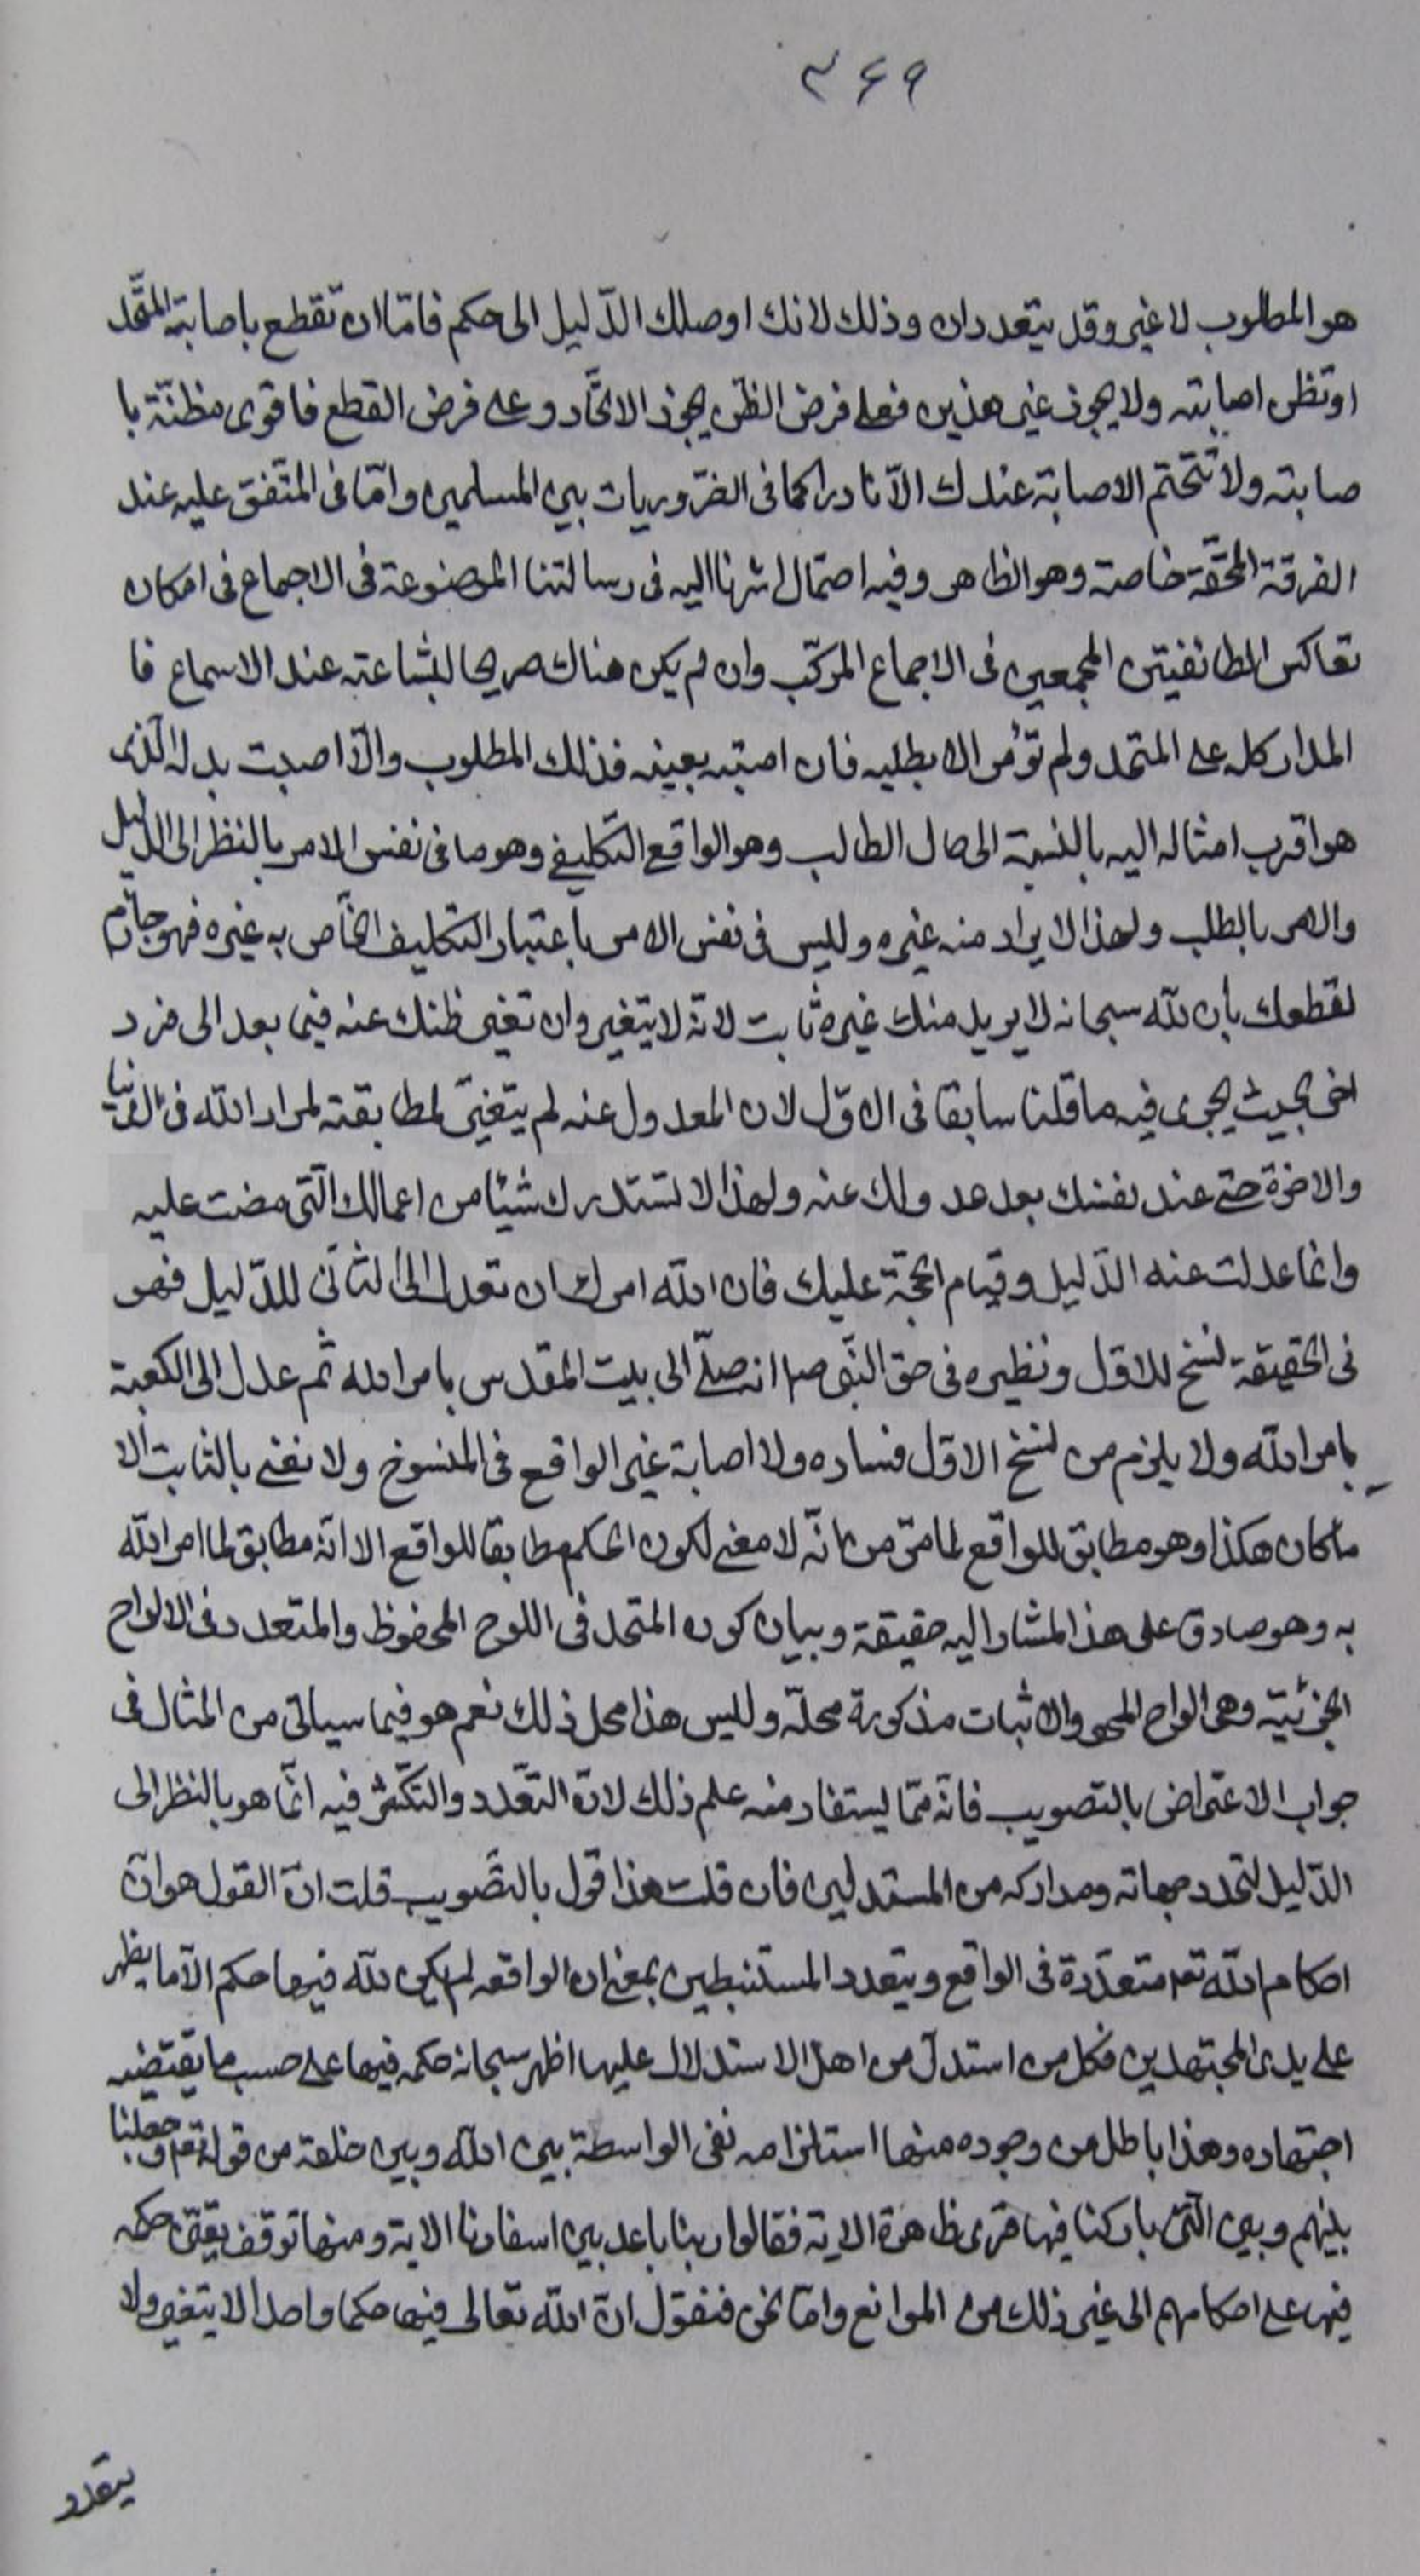 ۳۶۹
هو المطلوب لا غير وقد يتعددان وذلك لانك اوصلك الدّليل الى حكم فامّا ان تقطع باصابة المتّحد
او تظن اصابته ولا يجوز غير هذين فعلى فرض الظنّ يجوز الاتّحاد وعلى فرض القطع فاقوى مظنّة با
صابته ولا تتحتم الاصابة عندك الّا نادرا كما فى الضّروريات بين المسلمين وامّا فى المتّفق عليه عند
الفرقة المحقّة خاصة وهو الظاهر وفيه احتمال اشرنا اليه فى رسالتنا الموضوعة فى الاجماع فى امكان
تعاكس الطائفتين المجمعين فى الاجماع المركّب وان لم يكن هناك صريحا لبشاعته عند الاسماع فا
المدار كله على المتحد ولم تؤمر الا بطلبه فان اصبته بعينه فذلك المطلوب والّا اصبت بدله الّذى
هو اقرب امثاله اليه بالنسبة الى حال الطالب وهو الواقع التّكليفى وهو ما فى نفس الامر بالنظر الى الدّليل
والامر بالطلب ولهذا لا يراد منه غيره وليس فى نفس الامر باعتبار التكليف الخّاص به غيره فهو جازم
لقطعك بان الله سبحانه لا يريد منك غيره ثابت لانّه لا يتغير وان تغير ظنك عنه فيما بعد الى فرد
اخر بحيث يجرى فيه ما قلنا سابقا فى الاوّل لان المعدول عنه لم يتغيّر لمطابقته لمراد الله فى الدّنيا
والاخرة حتى عند نفسك بعد عدولك عنه ولهذا لا تستدرك شيئا من اعمالك الّتى مضت عليه
وانما عدلت عنه الدّليل وقيام الحجّة عليك فان الله امرك ان تعدل الى الثانى للدّليل فهو
فى الحقيقة نسخ للاوّل ونظيره فى حق النّبى ص انه صلّى الى بيت المقدس بامر الله ثم عدل الى الكعبة
بامر الله ولا يلزم من نسخ الاوّل فساده ولا اصابة غير الواقع فى المنسوخ ولا نعنى بالثابت الا
ما كان هكذا وهو مطابق للواقع لما مرّ من انّه لا معنى لكون الحكم مطابقا للواقع الا انّه مطابق لما امر الله
به وهو صادق على هذا المشار اليه حقيقة وبيان كون المتحد فى اللوح المحفوظ والمتعدد فى الالواح
الجزئيّة وهى الواح المحو والاثبات مذكورة محلّه وليس هذا محل ذلك نعم هو فيما سياتى من المثال فى
جواب الاعتراض بالتصويب فانّه ممّا يستفاد منه علم ذلك لانّ التعّدد والتكّثر فيه انمّا هو بالنظر الى
الدّليل لتعدد جهاته ومداركه من المستدلين فان قلت هذا قول بالتّصويب قلت انّ القول هو انّ
احكام الله تعم متعدّدة فى الواقع ويتعدد المستنبطين بمعنى ان الواقعه لم يكن لله فيها حكم الّا ما يظهر
على يدى المجتهدين فكل من استدلّ من اهل الاستدلال عليها اظهر سبحانه حكمه فيها على حسب ما يقتضيه
اجتهاده وهذا باطل من وجوده منها استلزامه نفى الواسطة بين الله وبين خلقه من قوله تعم وجعلنا
بينهم وبين الّتى باركنا فيها قرى ظاهرة الاية فقالوا ربنا باعد بين اسفارنا الاية ومنها توقف حكمه
فيها على احكامهم الى غير ذلك من الموانع وامّا نحن فنقول انّ الله تعالى فيها حكما واحدا لا يتغير ولا
يتعدد